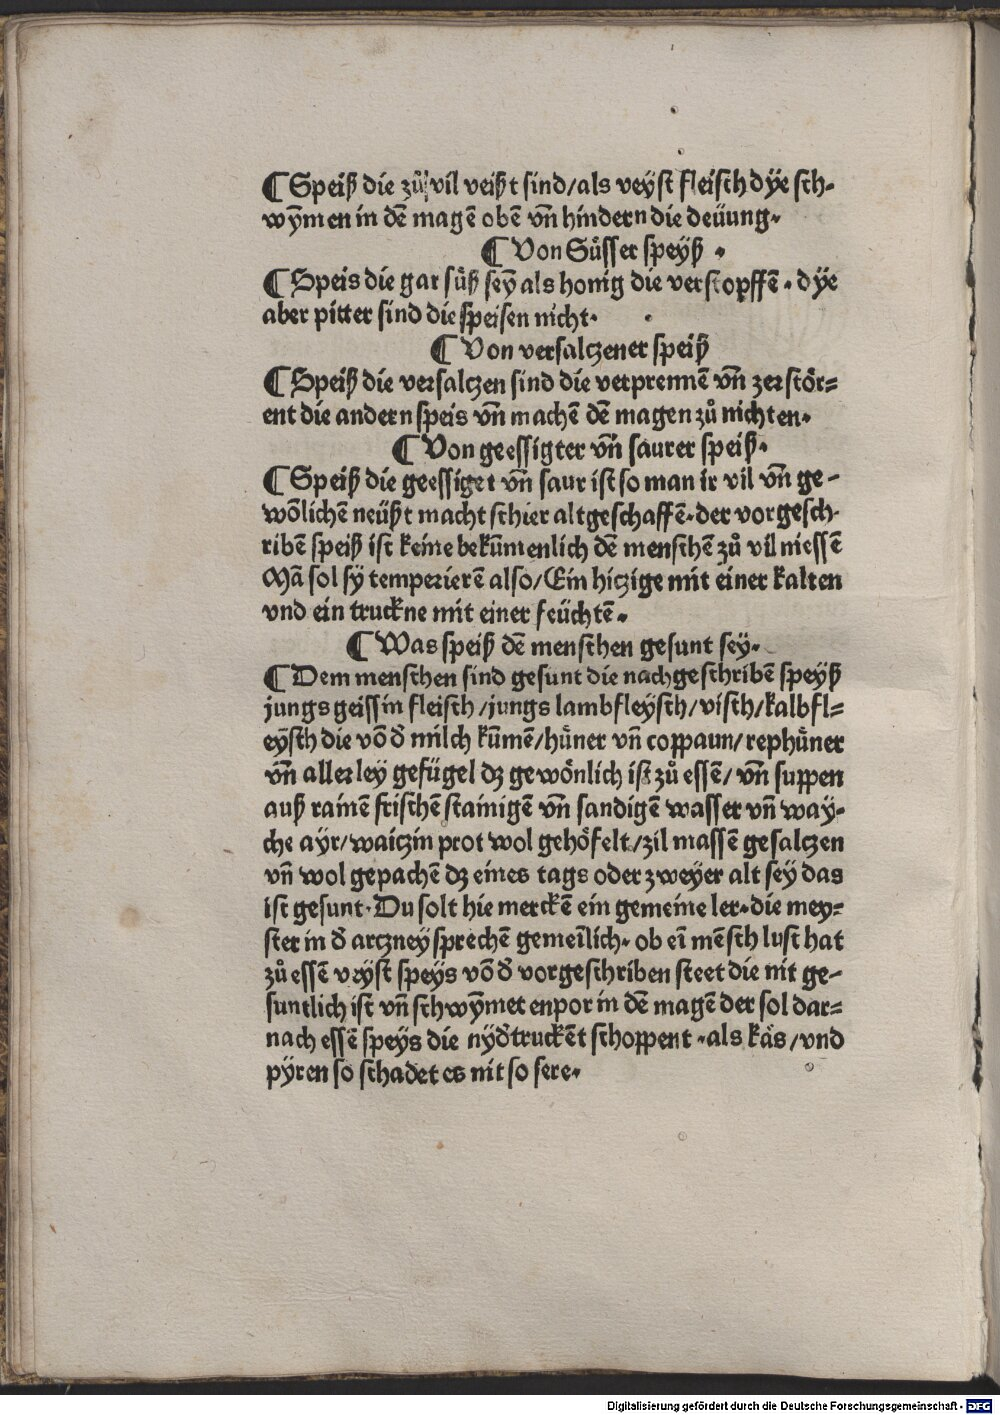 ¶ Speiß die zů vil veißt sind/als veyst fleisch dÿe sch-
wÿmen in dē magē obē vn̄ hindern die deüung.
¶ Von Süsser speyß .
¶ Speis die gar süß seȳ als honig die verstopffē . dÿe
aber pitter sind die speisen nicht.
¶ Von versalczener speiß
¶ Speiß die versalczen sind die verprennē vn̄ zerstör=
ent die andern speis vn̄ machē dē magen zů nichten.
¶ Von geessigter vn̄ saurer speiß.
¶ Speiß die geessiget vn̄ saur ist so man ir vil vn̄ ge-
wōlichē neüßt macht schier altgeschaffē. der vorgesch-
ribē speiß ist keine bekūmenlich dē menschē zů vil niessē
Mā sol sy temperierē also/Ein hiczige mit einer kalten
vnd ein truckne mit einer feüchtē.
¶ Was speiß dē menschen gesunt sey.
¶ Dem menschen sind gesunt die nachgeschribē speyß
jungs geissin fleisch/jungs lambfleysch/visch/kalbfl=
eysch die vō d̄ milch kūmē/hüner vn̄ coppaun/rephüner
vn̄ allerley gefügel dz gewönlich ist zů essē/ vn̄ suppen
auß rainē frischē stainigē vn̄ sandigē wasser vn̄ way-
che ayr/waiczin prot wol gehöfelt/zil massē gesalczen
vn̄ wol gepachē dz eines tags oder zweyer alt sey das
ist gesunt. Du solt hie merckē ein gemeine ler. die mey=
ster in d̄ arczney sprechē gemeīlich. ob eī mēsch lust hat
zů essē veyst speys vō d̄ vorgeschriben steet die nit ge-
suntlich ist vn̄ schwȳmet enpor in dē magē der sol dar=
nach essē speys die nyd̄truckēt schoppent . als käs/vnd
pÿren so schadet es nit so sere.
Digitalisierung gefördert durch die Deutsche Forschungsgemeinschaft - DFG